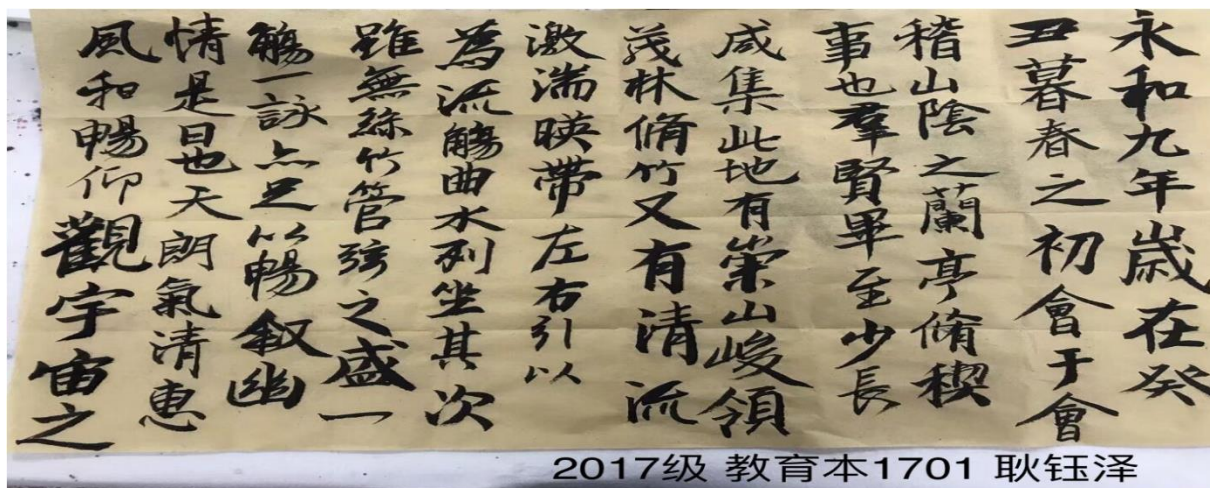 永和九年歲在癸
丑暮春之初會于會
稽山陰之蘭亭脩稧
事也羣賢畢至少長
咸集此地有崇山峻領
茂林脩竹又有清流
激湍暎帶左右引以
為流觴曲水列坐其次
雖無絲竹管弦之盛一
觴一詠亦足以暢敘幽
情是日也天朗氣清惠
風和暢仰觀宇宙之
2017级 教育本1701 耿钰泽